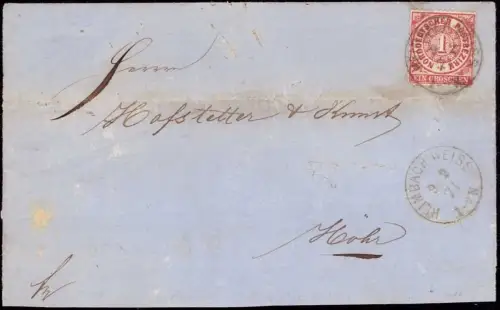 NORDDEUTSCHER POSTBEZIRK
1
EIN GROSCHEN
Herrn
Hofstetter & Kunst
HEIMBACH-WEISS
9 2
71
Höhr